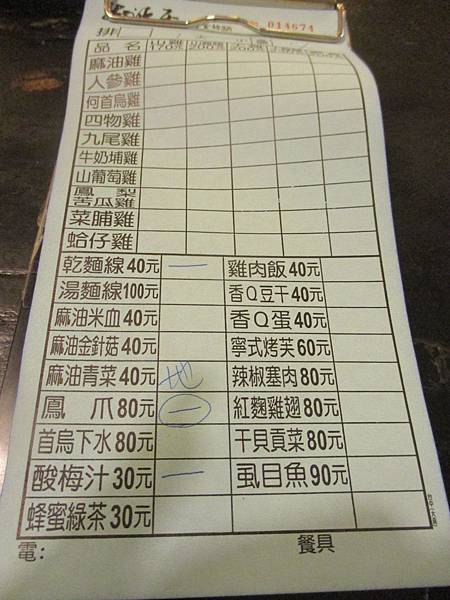 014674
排
品名
麻油雞
人參雞
何首烏雞
四物雞
九尾雞
牛奶埔雞
山葡萄雞
鳳梨
苦瓜雞
菜脯雞
蛤仔雞
乾麵線40元 一 雞肉飯40元
湯麵線100元 香Q豆干40元
麻油米血40元 香Q蛋40元
麻油金針菇40元 寧式烤芙60元
麻油青菜40元 地 辣椒塞肉80元
鳳爪80元 一 紅麴雞翅80元
首烏下水80元 干貝貢菜80元
酸梅汁30元 一 虱目魚90元
蜂蜜綠茶30元
電: 餐具